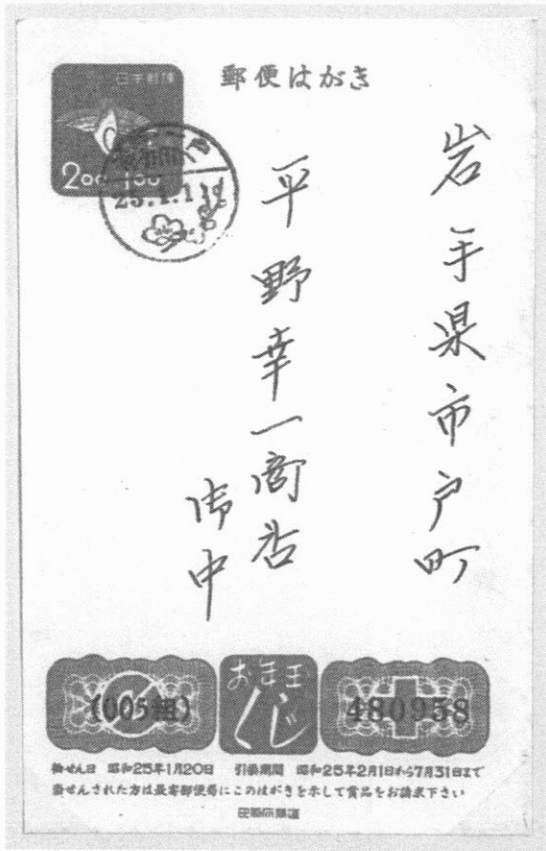 郵便はがき
日本郵便
2.00+1.00
25.1.1
岩手県市戸町
平野幸一商店
御中
(005組)
お年玉
くじ
480958
抽せん日 昭和25年1月20日 引換期間 昭和25年2月1日から7月31日まで
当せんされた方は最寄郵便局にこのはがきを示して賞品をお請求下さい